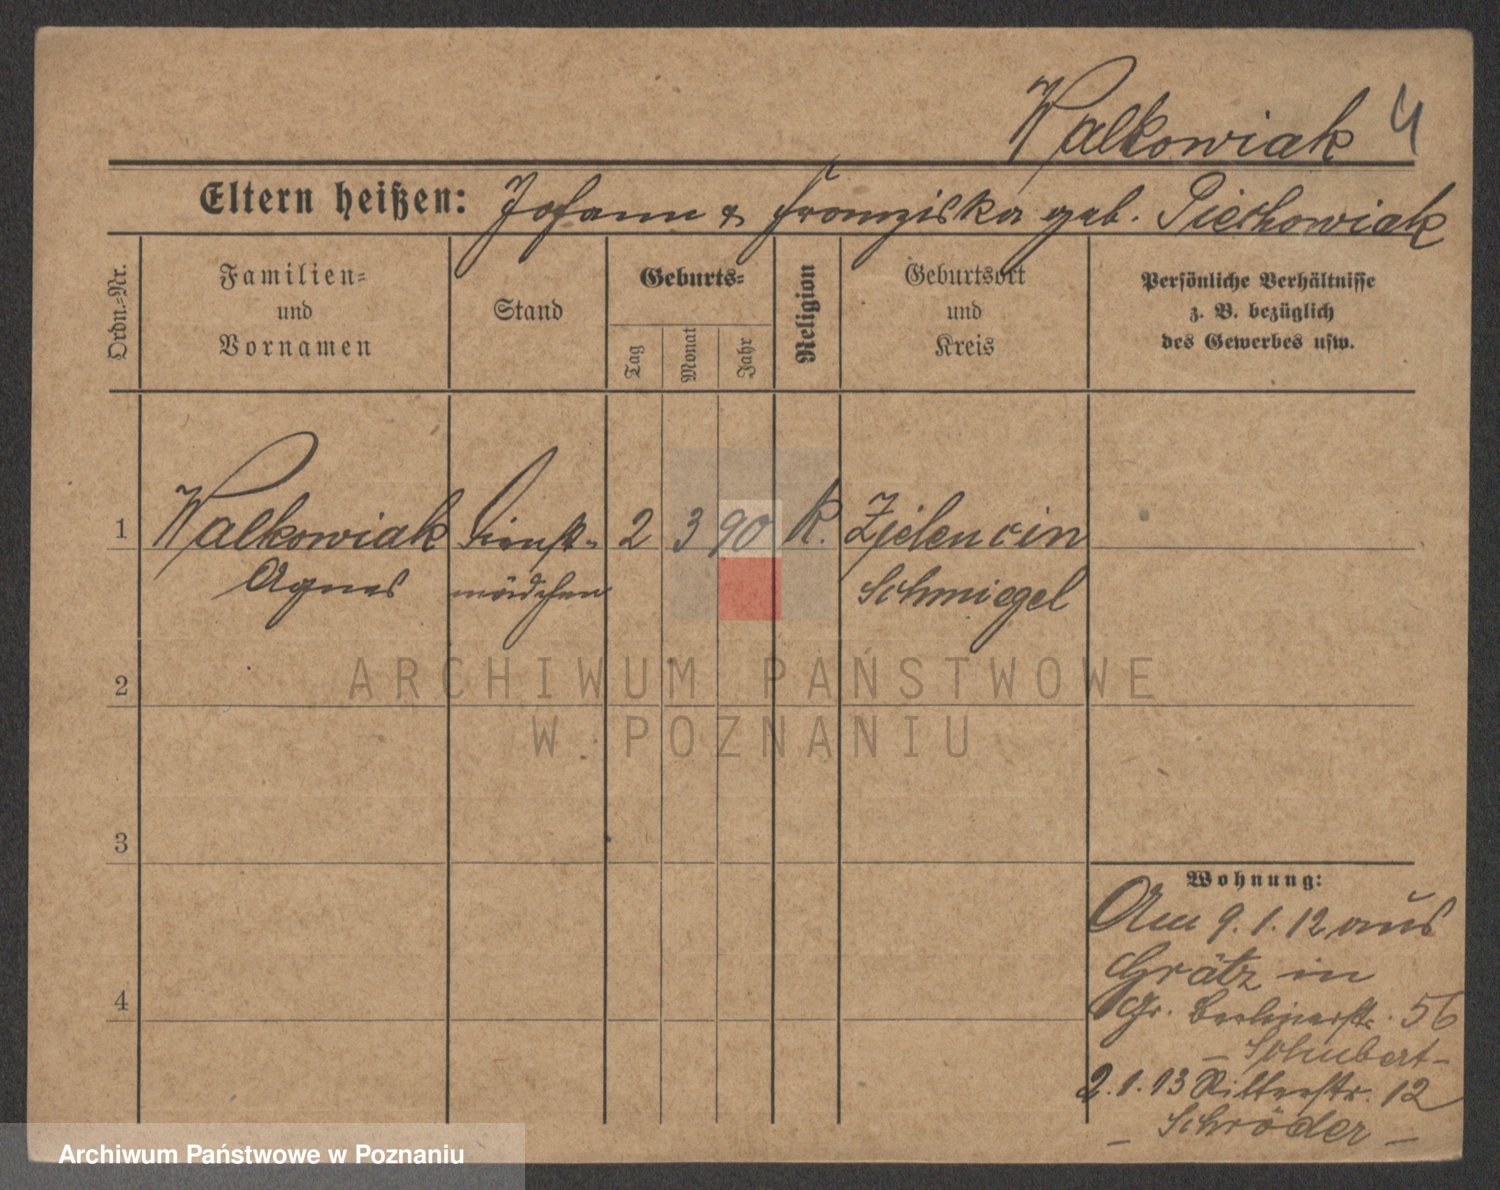 Walkowiak 4
Eltern heißen: Johann & Franziska geb. Piechowiak
Ordn.-Nr.
Familien-
und
Vornamen
Stand
Geburts-
Tag
Monat
Jahr
Religion
Geburtsort
und
Kreis
Persönliche Verhältnisse
z. B. bezüglich
des Gewerbes usw.
1 Walkowiak Dienst- 2 3 90 K. Zielencin
Agnes mädchen Schmiegel
2
3
4
Wohnung:
Am 9.1.12 aus
Grätz in
Gr. Berlinerstr. 56
– Schubert –
2.1.13 Ritterstr. 12
– Schröder –
ARCHIWUM PAŃSTWOWE
W POZNANIU
Archiwum Państwowe w Poznaniu